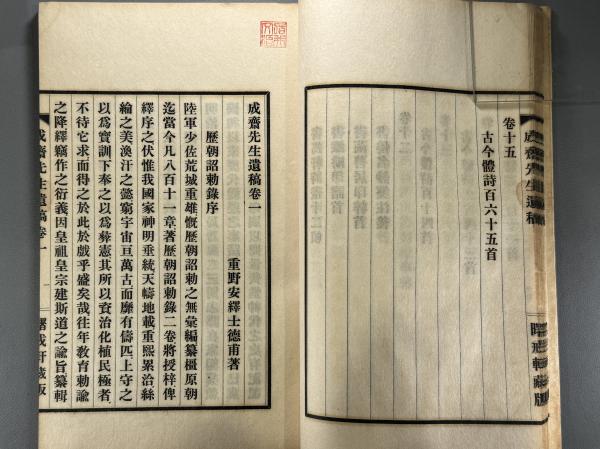 卷十五
古今體詩百六十五首
成齋先生遺稿卷一
重野安繹士德甫著
歷朝詔勅錄序
陸軍少佐荒城重雄慨歷朝詔勅之無彙編纂橿原朝
迄當今凡八百十一章著歷朝詔勅錄二卷將授梓俾
繹序之伏惟我國家神明垂統天幬地載重熙累洽絲
綸之美渙汗之懿窮宇宙亘萬古而靡有儔匹上守之
以爲寶訓下奉之以爲彝憲其所以資治化植民極者
不待它求而得之於此於戲乎盛矣哉往年敎育勅諭
之降繹竊作之衍義因皇祖皇宗建斯道之諭旨纂輯
成齋先生遺稿卷一